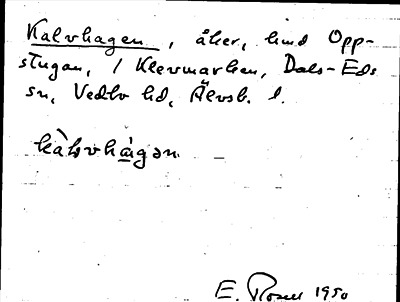 Kalvhagen, åker, hmd Opp-
stugan, / Klevmarken, Dals-Eds
sn, Vedbo hd, Älvsb. l.
kàlvhágən
E. Rosell 1950